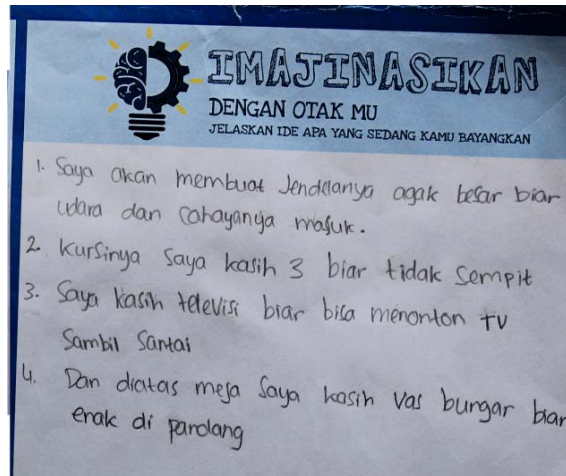 IMAJINASIKAN
DENGAN OTAK MU
JELASKAN IDE APA YANG SEDANG KAMU BAYANGKAN
1. Saya akan membuat Jendelanya agak besar biar
udara dan cahayanya masuk.
2. Kursinya Saya kasih 3 biar tidak Sempit
3. Saya kasih televisi biar bisa menonton tv
Sambil Santai
4. Dan diatas meja Saya kasih vas bungar biar
enak di pandang